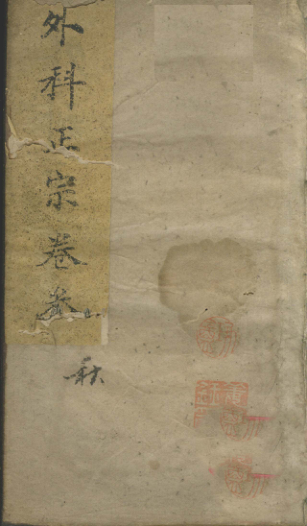 外科正宗卷叁
秋